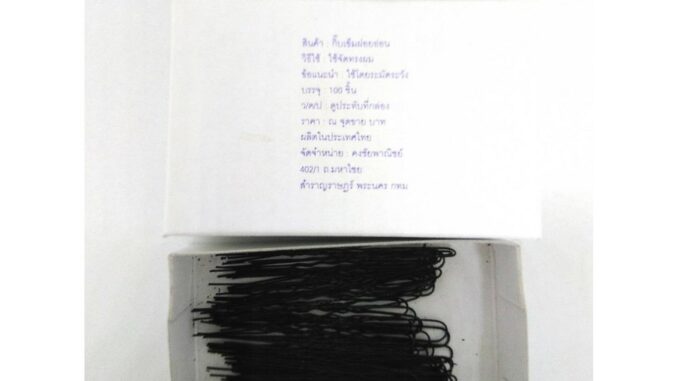 สินค้า : กิ๊บเข็มฝอยอ่อน
วิธีใช้ : ใช้จัดทรงผม
ข้อแนะนำ : ใช้โดยระมัดระวัง
บรรจุ : 100 ชิ้น
ว/ด/ป : ดูประทับที่กล่อง
ราคา : ณ จุดขาย บาท
ผลิตในประเทศไทย
จัดจำหน่าย : คงชัยพาณิชย์
402/1 ถ.มหาไชย
สำราญราษฎร์ พระนคร กทม